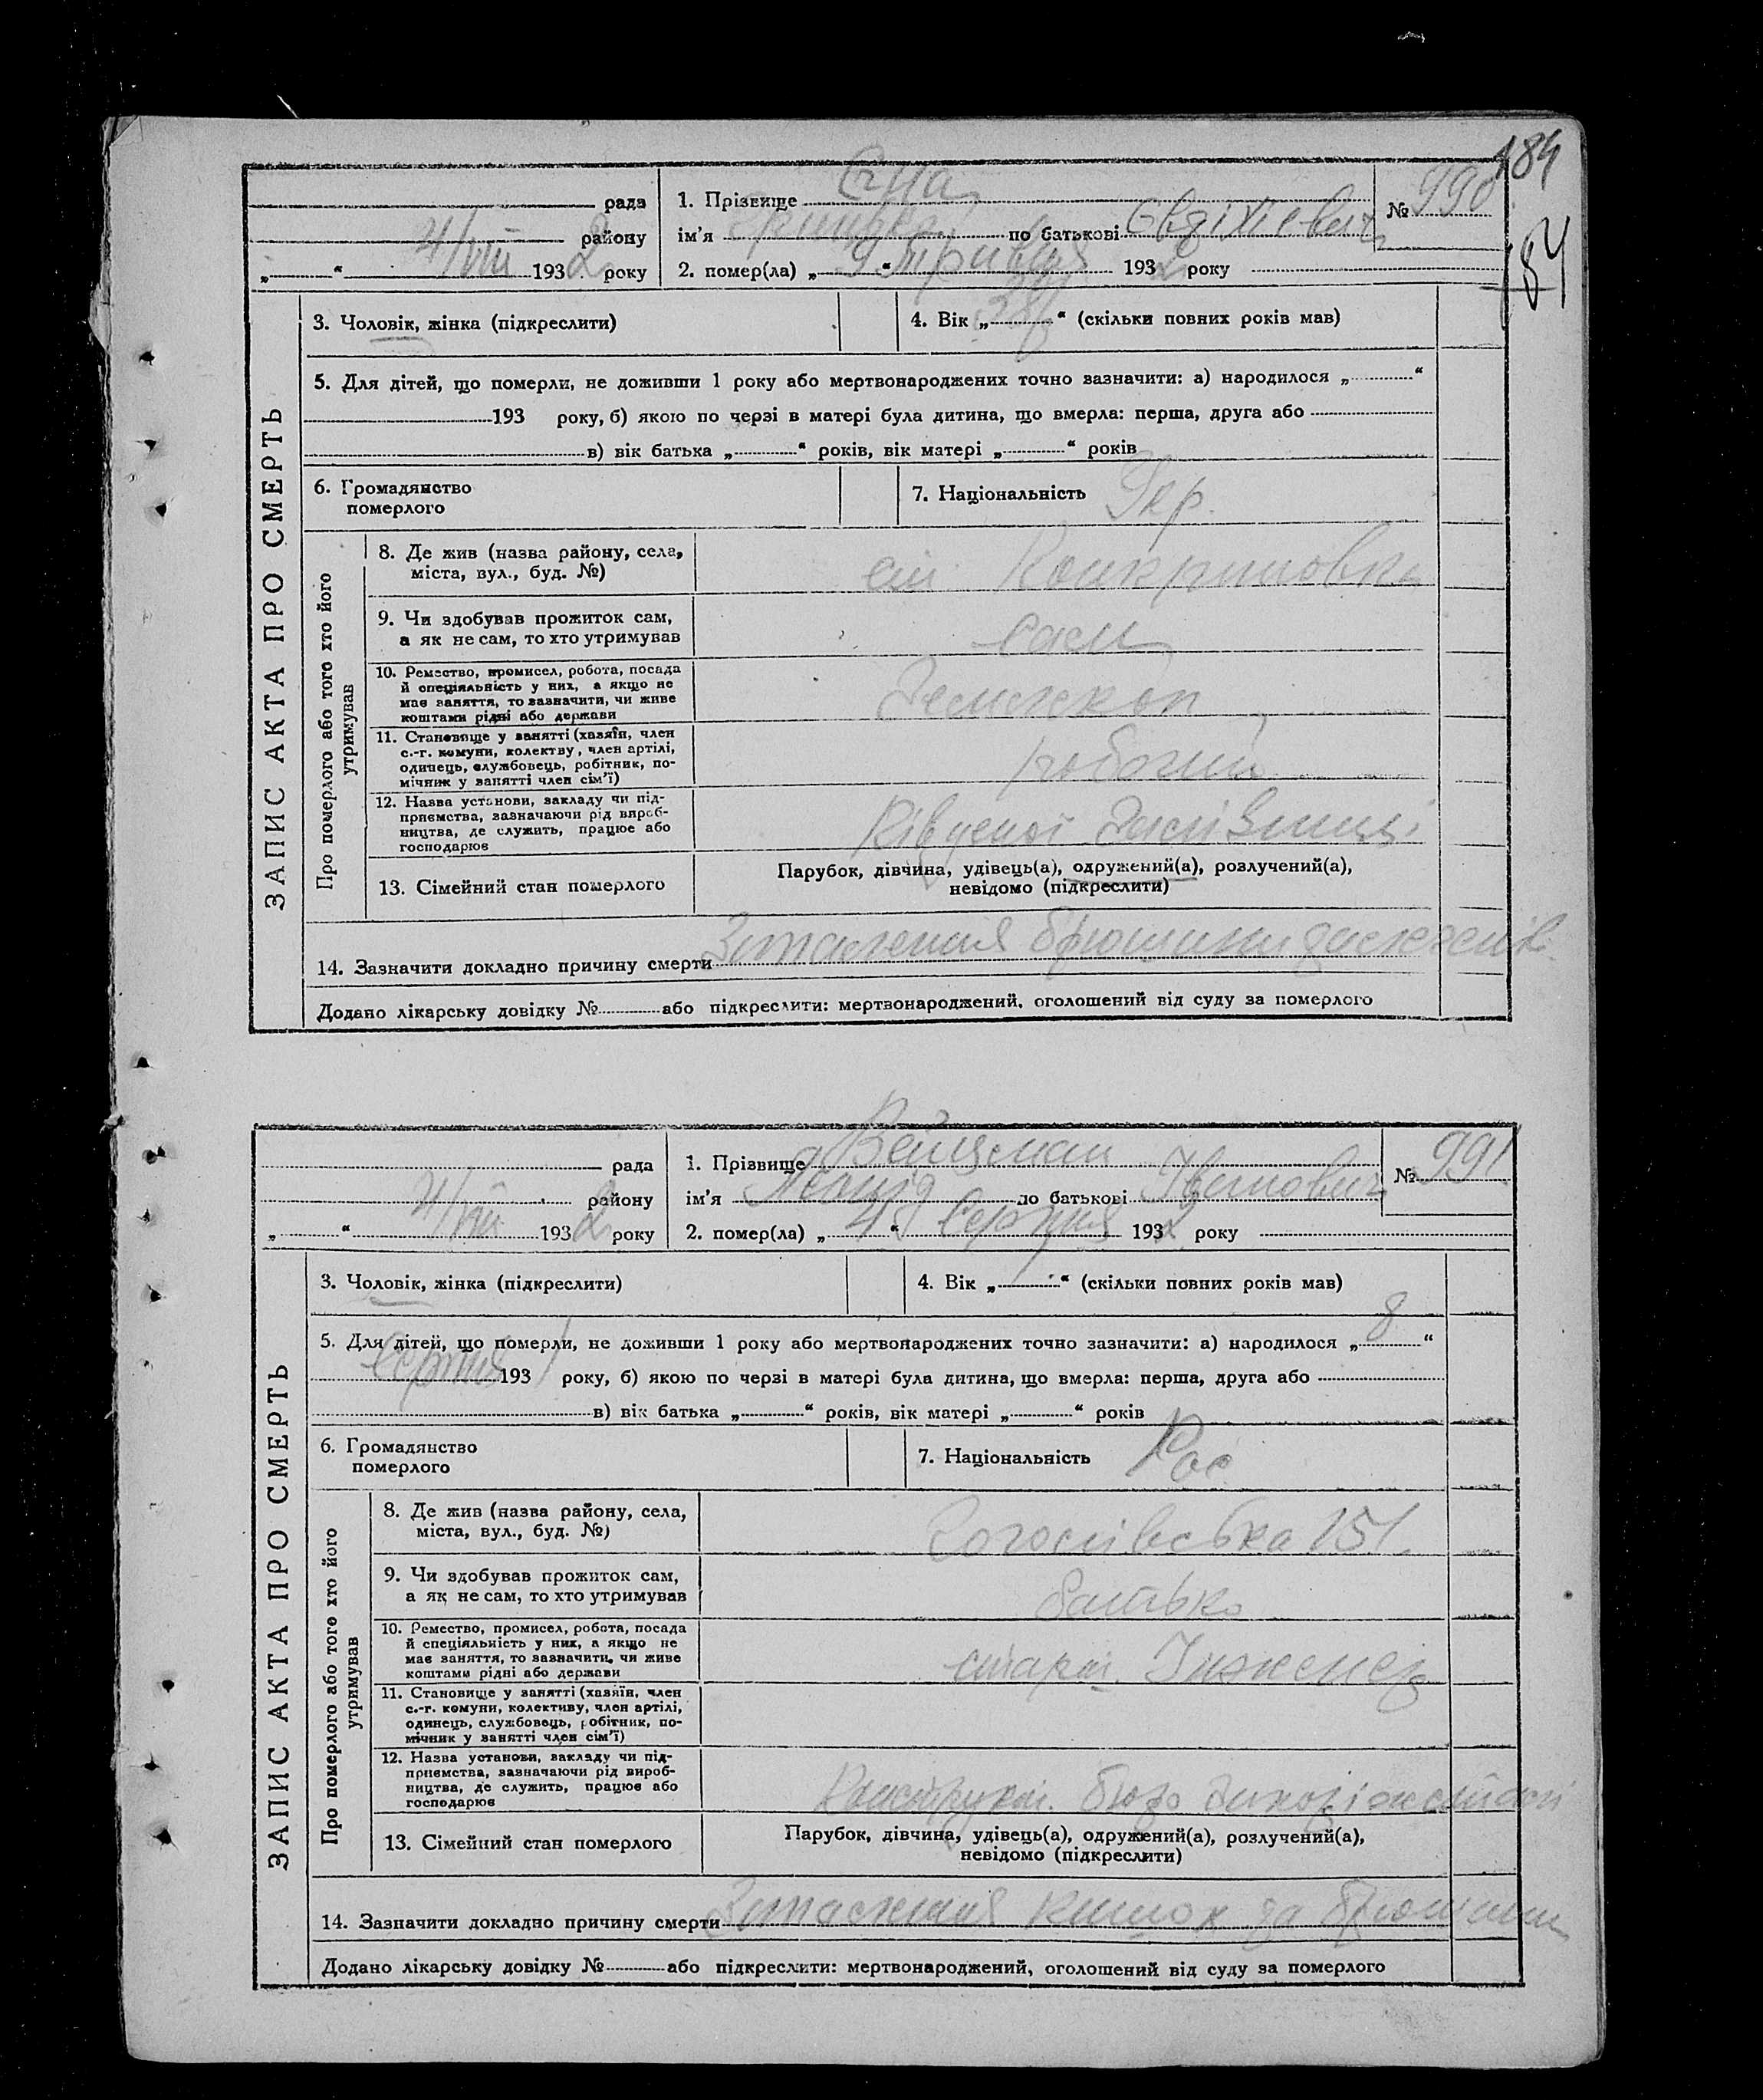 184
184
рада
1. Прізвище
№ 990
району
ім'я по батькові
4/VIII
„ “ 1932 року
2. помер(ла) „ “ 193 року
ЗАПИС АКТА ПРО СМЕРТЬ
3. Чоловік, жінка (підкреслити)
4. Вік „ 38 “ (скільки повних років мав)
5. Для дітей, що померли, не доживши 1 року або мертвонароджених точно зазначити: а) народилося „ “
193 року, б) якою по черзі в матері була дитина, що вмерла: перша, друга або
в) вік батька „ “ років, вік матері „ “ років
6. Громадянство
померлого
7. Національність Укр.
Про померлого або того хто його
утримував
8. Де жив (назва району, села,
міста, вул., буд. №)
9. Чи здобував прожиток сам,
а як не сам, то хто утримував
сам
10. Ремество, промисел, робота, посада
й спеціяльність у них, а якщо не
має заняття, то зазначити, чи живе
коштами рідні або держави
Землекоп
11. Становище у занятті (хазяїн, член
с.-г. комуни, колектву, член артілі,
одинець, службовець, робітник, по-
мічник у занятті член сім'ї)
робочий
12. Назва установи, закладу чи під-
приємства, зазначаючи рід вироб-
ництва, де служить, працює або
господарює
13. Сімейний стан померлого
Парубок, дівчина, удівець(а), одружений(а), розлучений(а),
невідомо (підкреслити)
14. Зазначити докладно причину смерти Запалення брюшини
Додано лікарську довідку № або підкреслити: мертвонароджений, оголошений від суду за померлого
рада
1. Прізвище Вейцман
№ 991
району
ім'я Леонід по батькові
4/VIII
„ “ 1932 року
2. помер(ла) „ 4 “ Серпня 1932 року
ЗАПИС АКТА ПРО СМЕРТЬ
3. Чоловік, жінка (підкреслити)
4. Вік „ “ (скільки повних років мав)
5. Для дітей, що померли, не доживши 1 року або мертвонароджених точно зазначити: а) народилося „ 8 “
Серпня 1931 року, б) якою по черзі в матері була дитина, що вмерла: перша, друга або
в) вік батька „ “ років, вік матері „ “ років
6. Громадянство
померлого
7. Національність Рос.
Про померлого або того хто його
утримував
8. Де жив (назва району, села,
міста, вул., буд. №)
151
9. Чи здобував прожиток сам,
а як не сам, то хто утримував
батько
10. Ремество, промисел, робота, посада
й спеціяльність у них, а якщо не
має заняття, то зазначити, чи живе
коштами рідні або держави
старш. Інженер
11. Становище у занятті (хазяїн, член
с.-г. комуни, колективу, член артілі,
одинець, службовець, робітник, по-
мічник у занятті член сім'ї)
12. Назва установи, закладу чи під-
приємства, зазначаючи рід вироб-
ництва, де служить, працює або
господарює
Конструкт. бюро
13. Сімейний стан померлого
Парубок, дівчина, удівець(а), одружений(а), розлучений(а),
невідомо (підкреслити)
14. Зазначити докладно причину смерти Запалення кишок та брюшини
Додано лікарську довідку № або підкреслити: мертвонароджений, оголошений від суду за померлого